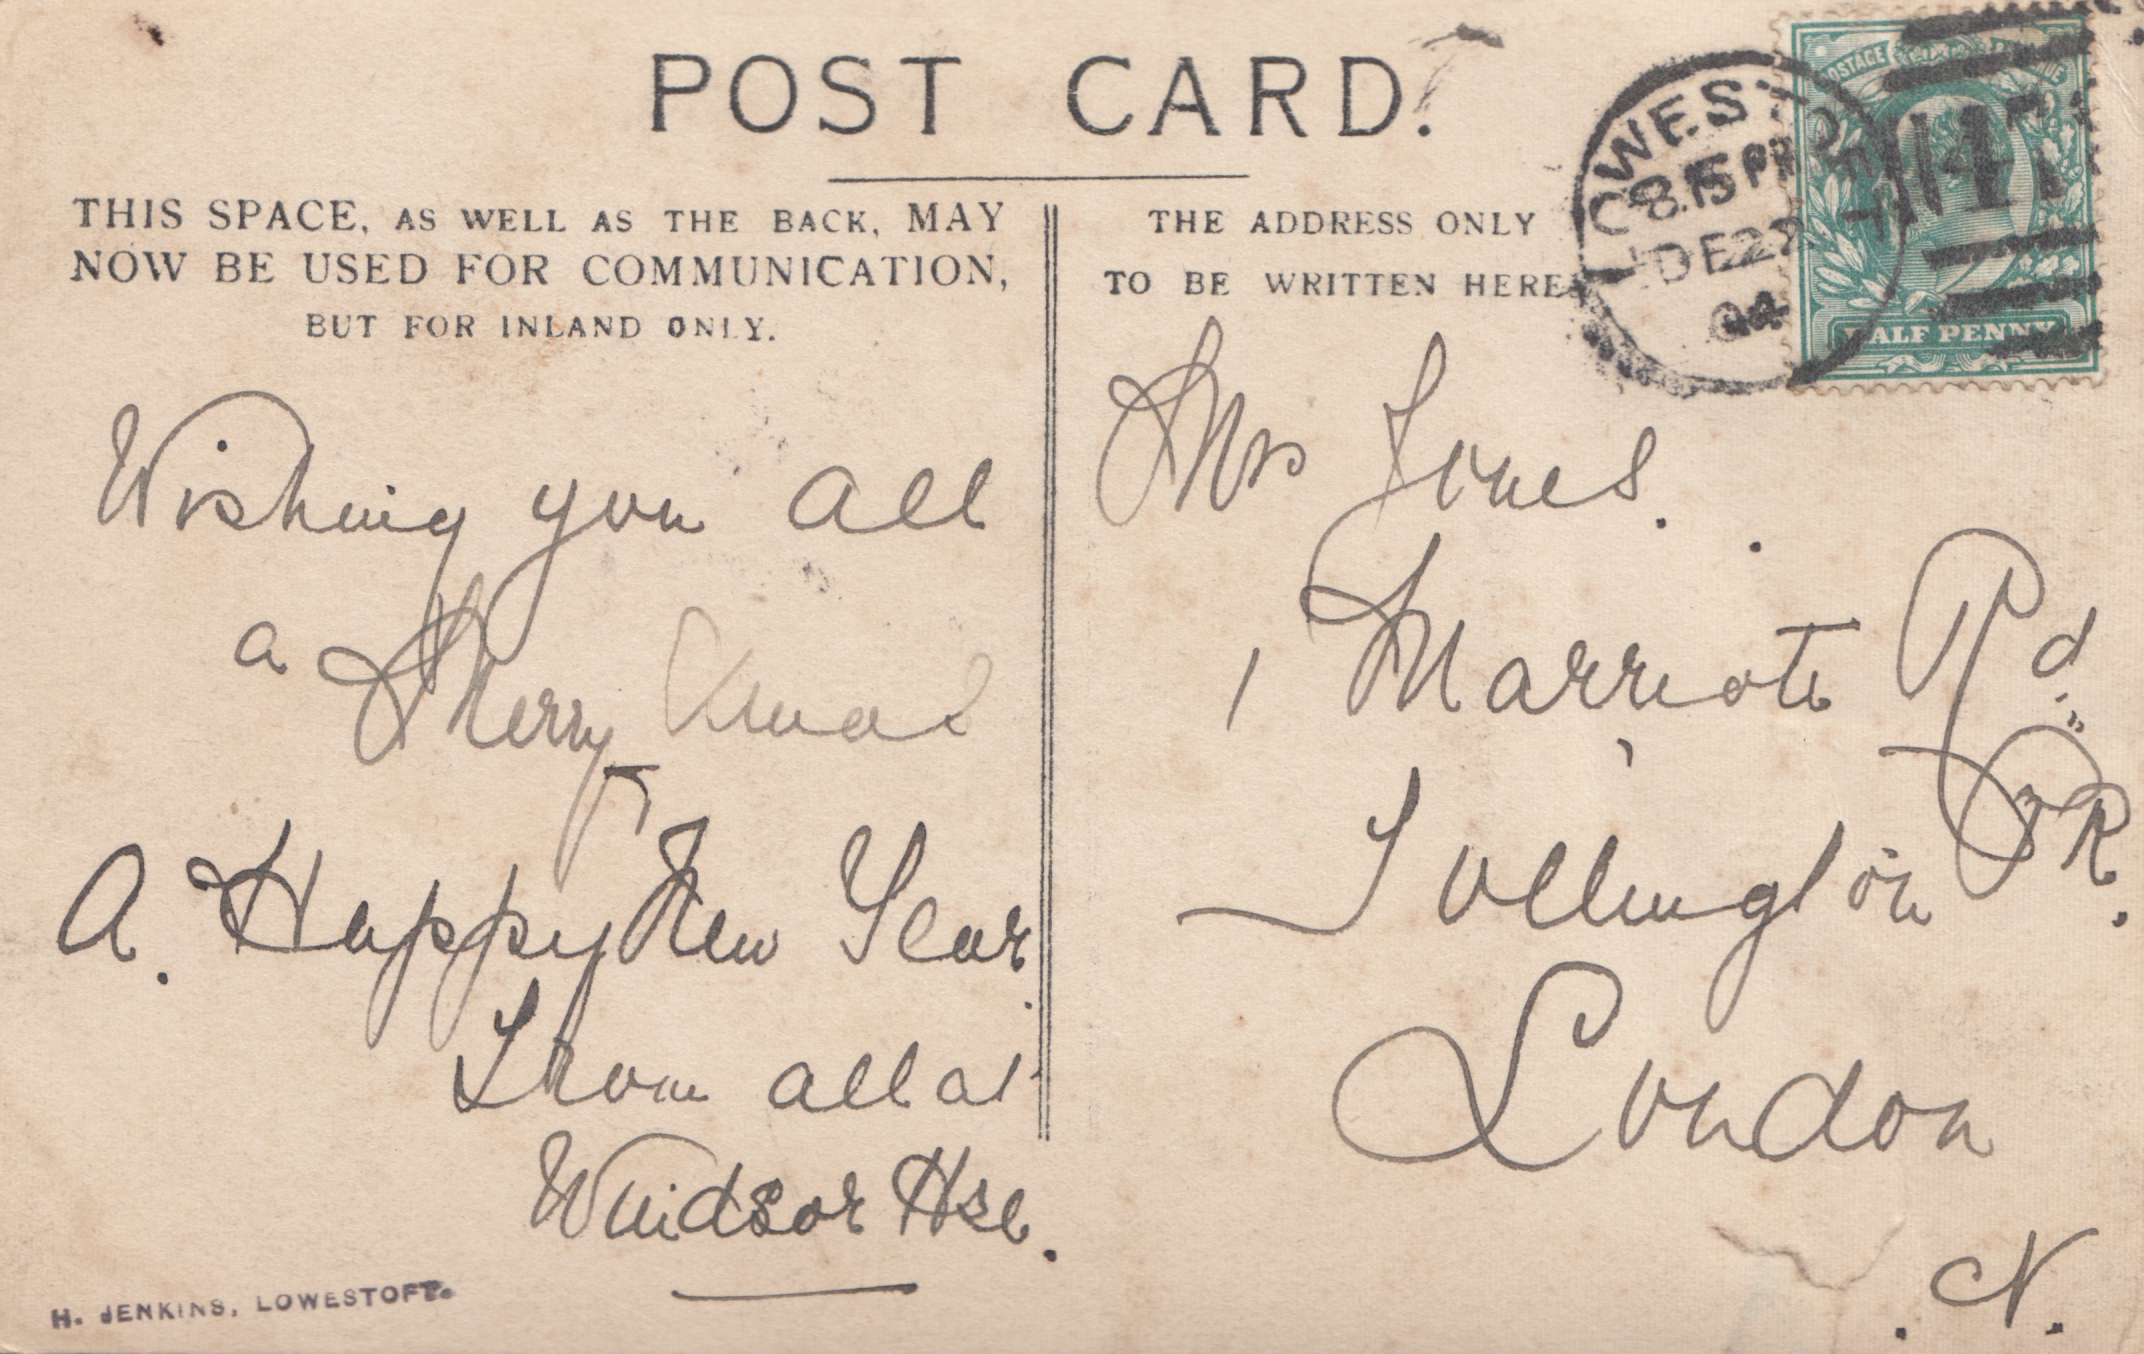 POST CARD.
THIS SPACE, AS WELL AS THE BACK, MAY
NOW BE USED FOR COMMUNICATION,
BUT FOR INLAND ONLY.
Wishing you all
a Merry Xmas
A. Happy New Year.
From all at
Windsor Hse.
H. JENKINS, LOWESTOFT.
THE ADDRESS ONLY
TO BE WRITTEN HERE
Mrs Jones.
1 Marriott Rd.
Tollington PK.
London
N.
LOWESTOFT
8.15 PM
DE 22
04
POSTAGE & REVENUE
HALF PENNY